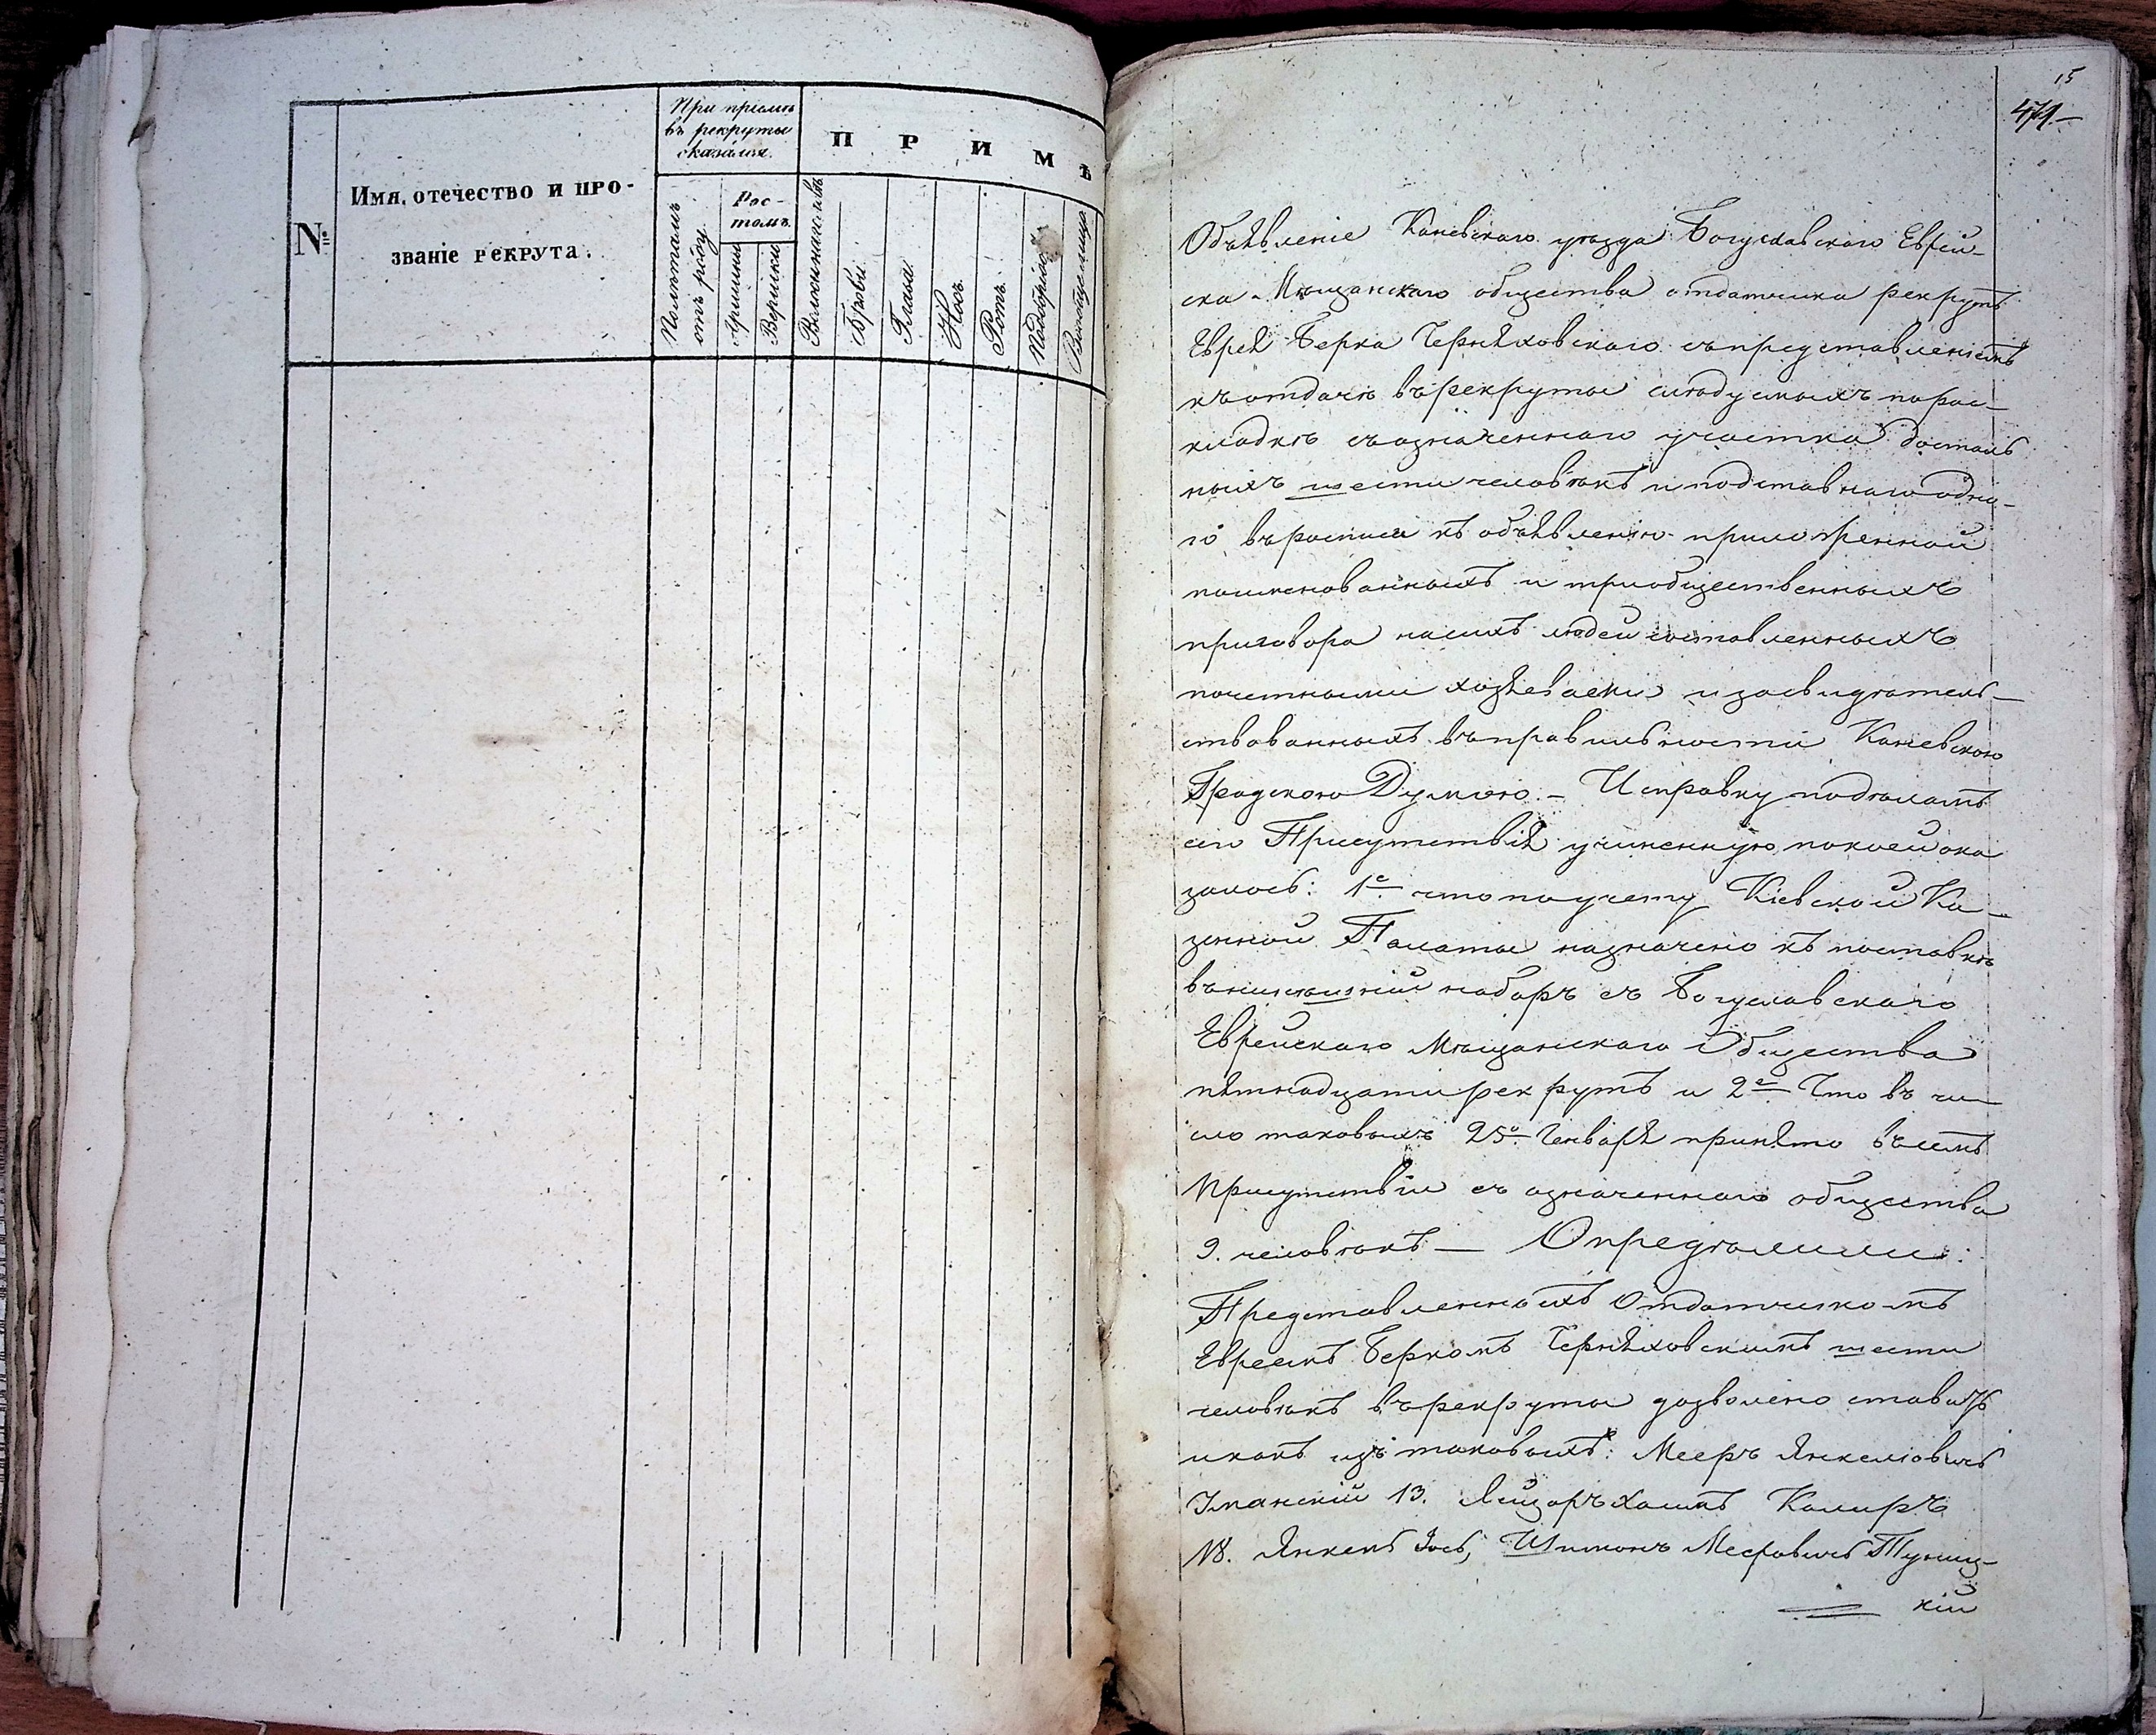 №
Имя, отечество и про-
званіе рекрута.
При пріемѣ
въ рекруты
сказался.
Полѣтамъ
отъ роду.
Рос-
томъ.
Аршины
Вершки
ПРИМѢ
Волосы
Брови
Глаза
Носъ
Ротъ
Подбородокъ
15
471.—
Объявленіе Каневскаго уѣзда Богуславскаго Еврей-
ско-Мѣщанскаго общества отдатчика рекрутъ
Еврея Берка Черняховскаго съ представленіемъ
къ отдачѣ въ рекруты слѣдуемыхъ по рас-
кладкѣ съ означеннаго участка досталь
ныхъ шести человѣкъ и подставнаго одно-
го въ росписи къ объявленію приложенной
поименованныхъ и три общественныхъ
приговора на сихъ людей составленныхъ
почетными хозяевами и засвидѣтель-
ствованныхъ въ правильности Каневскою
Градскою Думою. — И справку по дѣламъ
сего Присутствія учиненную, по коей ока
залось: 1е что по учету Кіевской Ка-
зенной Палаты назначено къ поставкѣ
въ нынѣшній наборъ съ Богуславскаго
Еврейскаго Мѣщанскаго Общества
пятнадцати рекрутъ и 2е Что въ чи-
сло таковыхъ 25о Генваря принято въ семъ
Присутствіи съ означеннаго общества
9. человѣкъ — Опредѣлили:
Представленныхъ Отдатчикомъ
Евреемъ Беркомъ Черняховскимъ шести
человѣкъ въ рекруты дозволено ставить
и какъ изъ таковыхъ: Мееръ Янкеліовичъ
Уманскій 13. Лейзоръ Хаимъ Камиръ
18. Янкель Іось, Шимонъ Мееровичъ Туниц-
кій